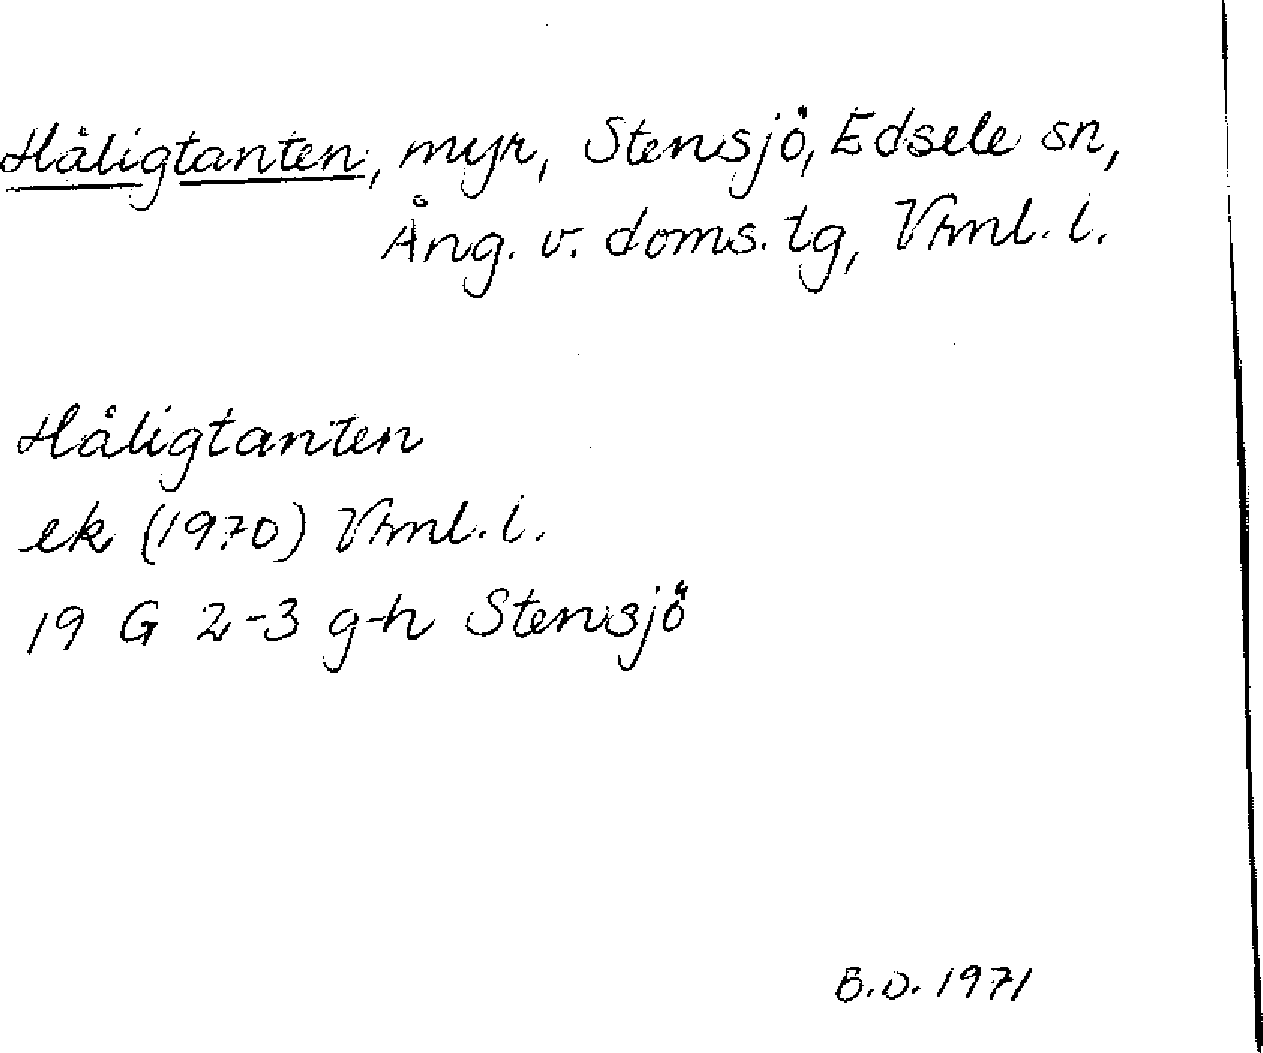 Håligtanten, myr, Stensjö, Edsele sn,
Ång. v. doms. tg, Vrnl. l.
Håligtanten
ek (1970) Vrnl. l.
19 G 2-3 g-h Stensjö
B.D. 1971